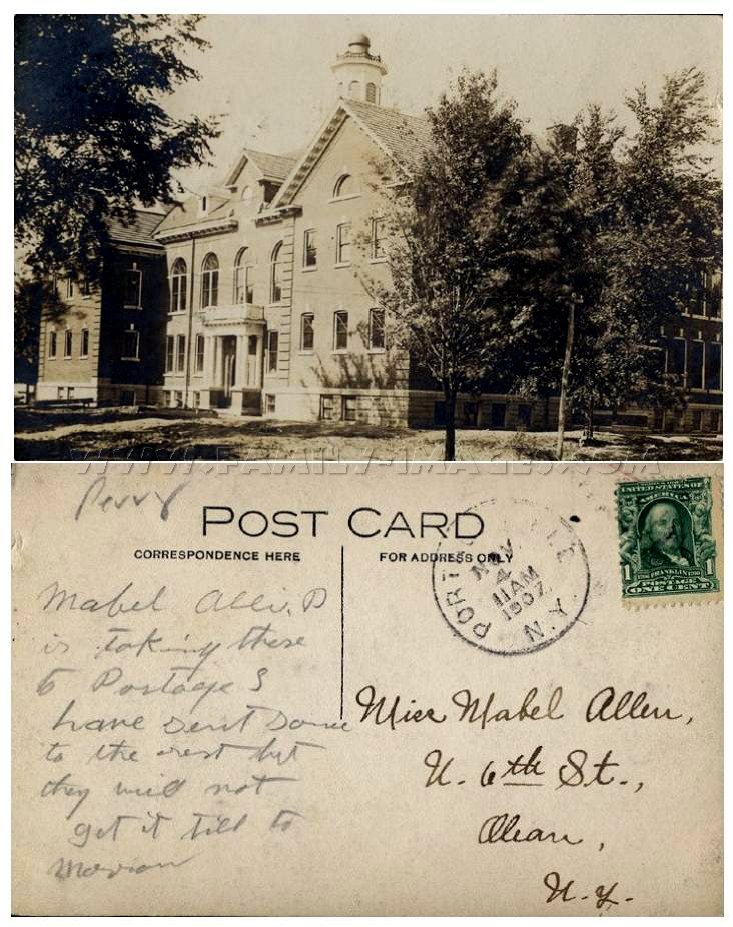 WWW.FAMILY-IMAGES.COM
Perry
POST CARD
CORRESPONDENCE HERE
FOR ADDRESS ONLY
NOV
4
11 AM
1907
N.Y.
UNITED STATES OF
AMERICA
1 FRANKLIN 1
POSTAGE
ONE CENT
Mabel
is taking these
to Postage &
have sent some
to the rest but
they will not
get it till to
morrow
Miss Mabel Allen,
N. 6th St.,
Olean,
N.Y.